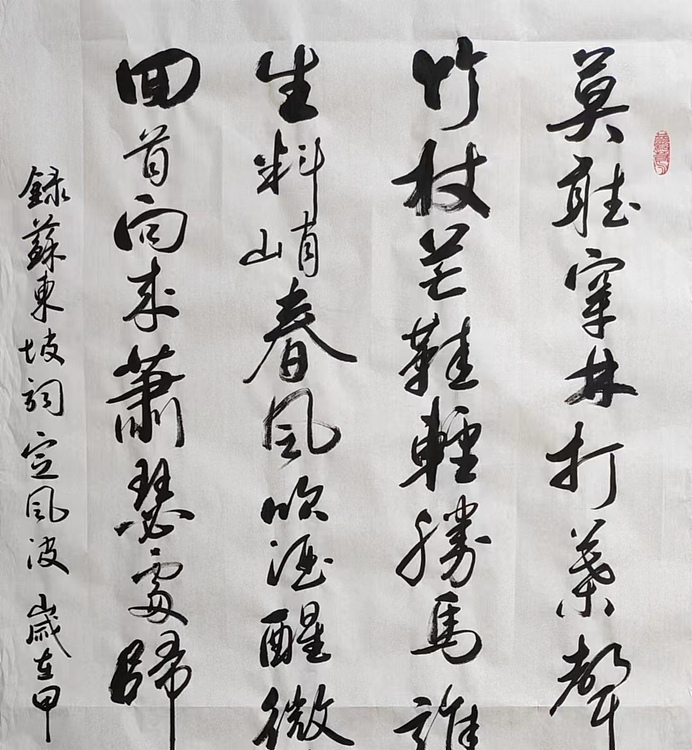 莫聽穿林打葉聲
竹杖芒鞋輕勝馬誰
生料峭春風吹酒醒微
回首向來蕭瑟處歸
錄蘇東坡詞定風波 歲在甲